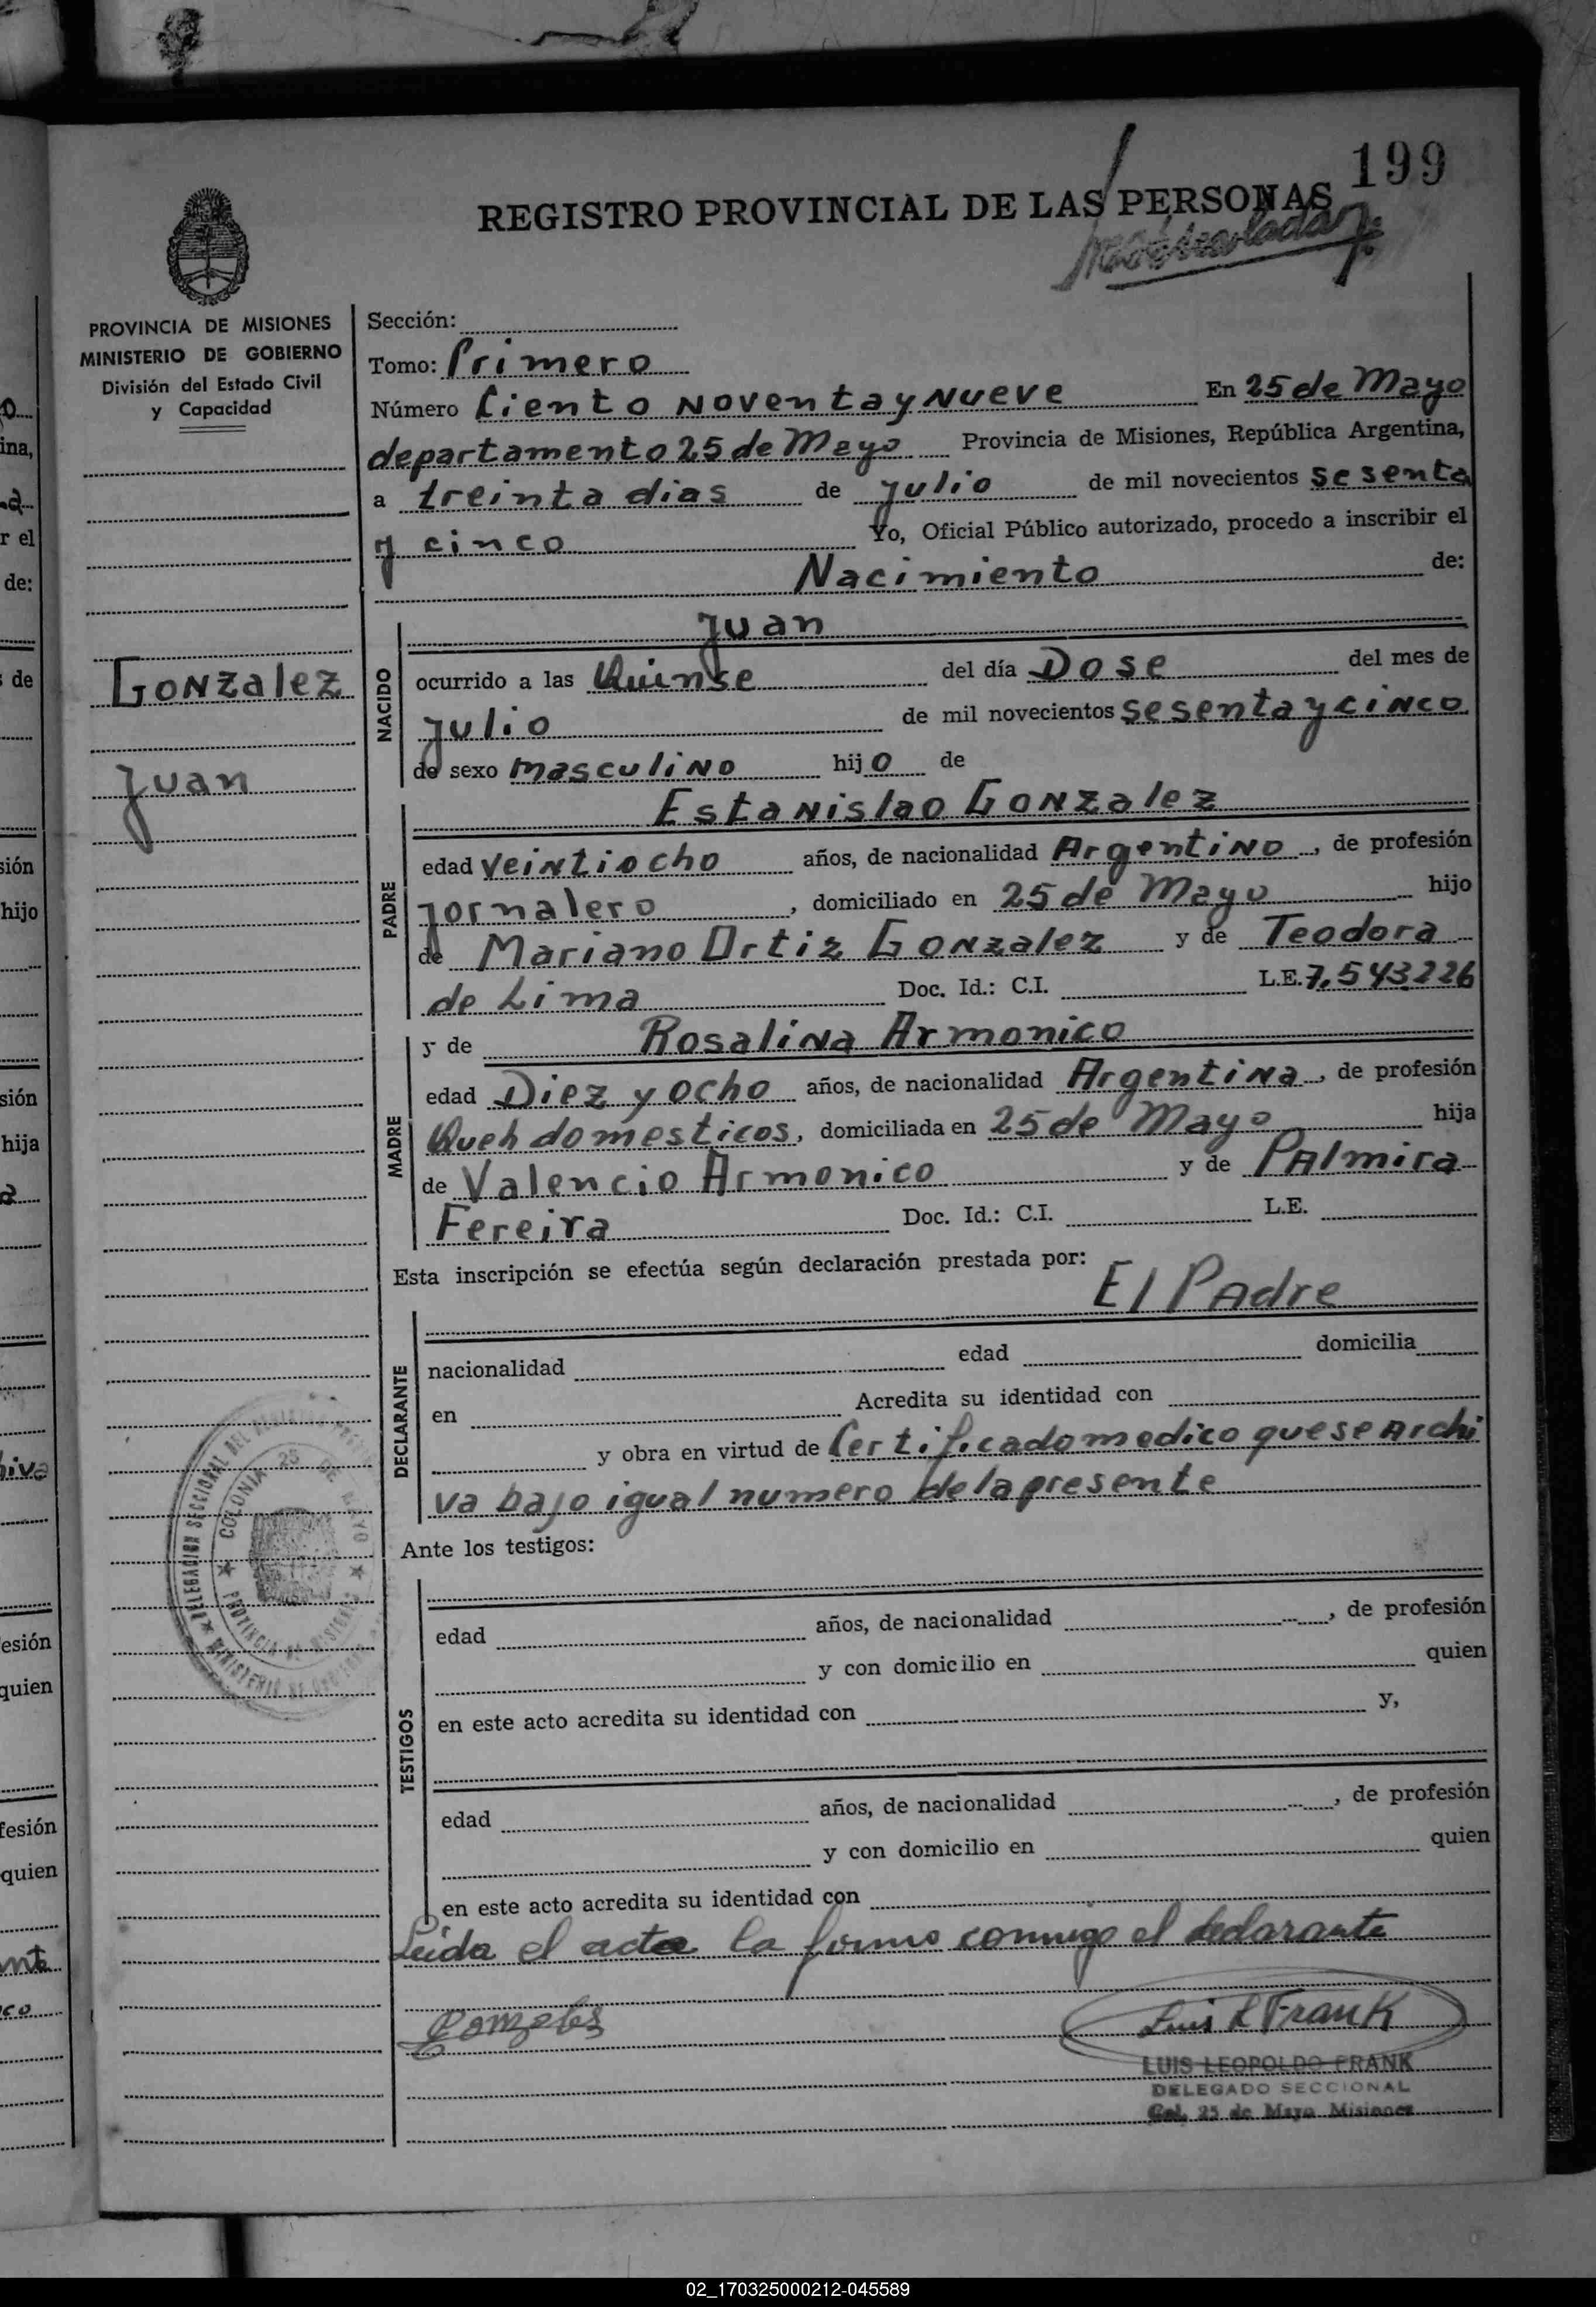 199
REGISTRO PROVINCIAL DE LAS PERSONAS
PROVINCIA DE MISIONES
MINISTERIO DE GOBIERNO
División del Estado Civil
y Capacidad
Gonzalez
Juan
Sección:
Tomo: Primero
Número Ciento Noventa y Nueve En 25 de Mayo
departamento 25 de Mayo Provincia de Misiones, República Argentina,
a treinta dias de julio de mil novecientos sesenta
y cinco Yo, Oficial Público autorizado, procedo a inscribir el
Nacimiento de:
NACIDO
Juan
ocurrido a las Quinse del día Dose del mes de
julio de mil novecientos sesenta y cinco
de sexo masculino hijo de
PADRE
Estanislao Gonzalez
edad veintiocho años, de nacionalidad Argentino, de profesión
jornalero, domiciliado en 25 de Mayo hijo
de Mariano Ortiz Gonzalez y de Teodora
de Lima Doc. Id.: C.I. L.E. 7.543226
MADRE
y de Rosalina Armonico
edad Diez y ocho años, de nacionalidad Argentina, de profesión
Queh domesticos, domiciliada en 25 de Mayo hija
de Valencio Armonico y de Palmira
Fereira Doc. Id.: C.I. L.E.
Esta inscripción se efectúa según declaración prestada por:
El Padre
DECLARANTE
nacionalidad edad domicilia
en Acredita su identidad con
y obra en virtud de Certificado medico que se Archi
va bajo igual numero de la presente
Ante los testigos:
TESTIGOS
edad años, de nacionalidad , de profesión
y con domicilio en quien
en este acto acredita su identidad con y,
edad años, de nacionalidad , de profesión
y con domicilio en quien
en este acto acredita su identidad con
Leida el acta la firma conmigo el declarante
Gonzales
Luis L Frank
LUIS LEOPOLDO FRANK
DELEGADO SECCIONAL
Col. 25 de Mayo Misiones
DELEGACION SECCIONAL DEL
COLONIA 25 DE MAYO
PROVINCIA DE MISIONES
02_170325000212-045589